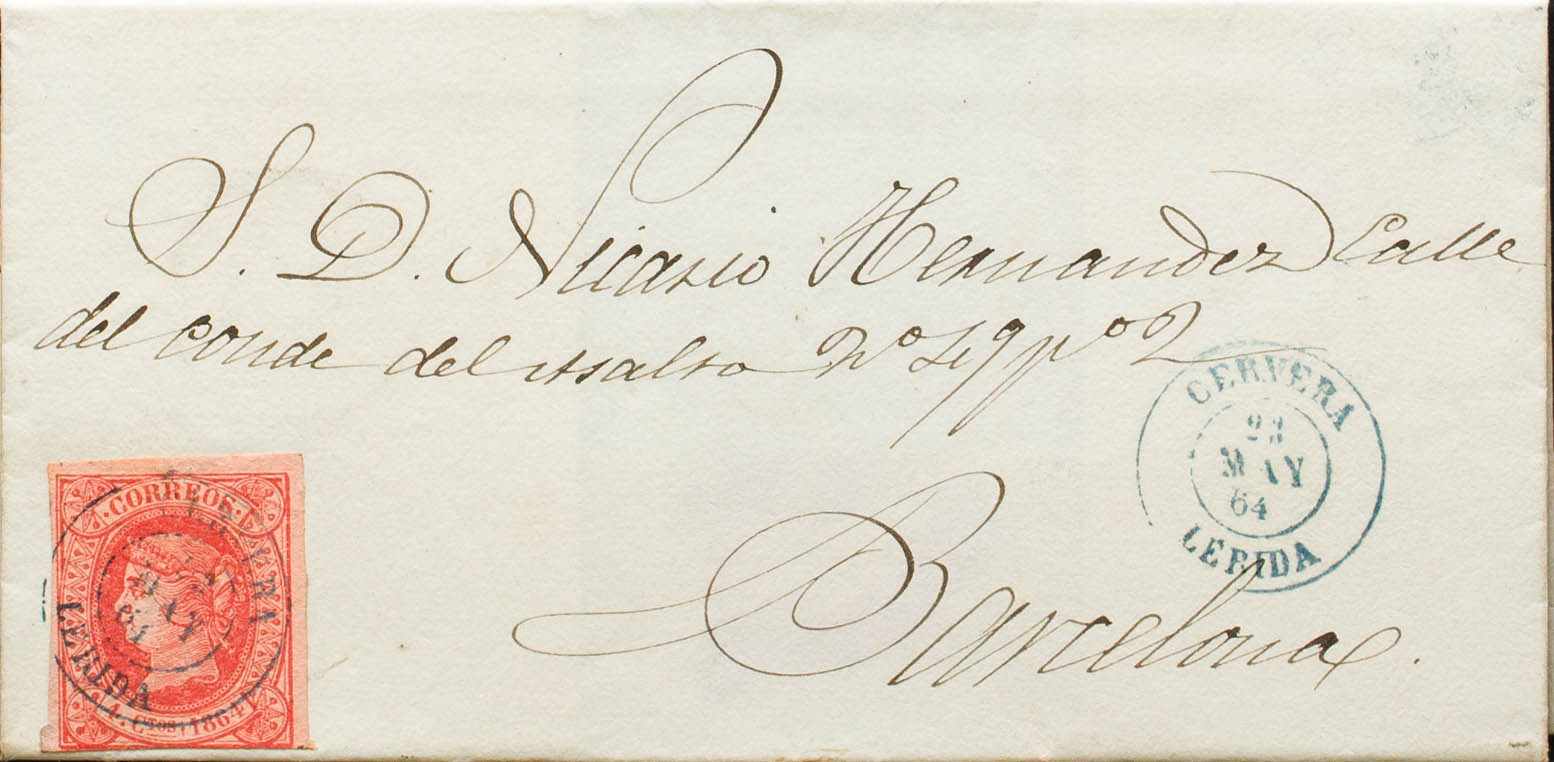 S. D. Nicasio Hernandez Calle
del conde del Asalto Nº 49 pº 2
Barcelona.
CERVERA
23
MAY
64
LERIDA
CORREOS
4. CTOS 1864
CERVERA
MAY
64
LERIDA